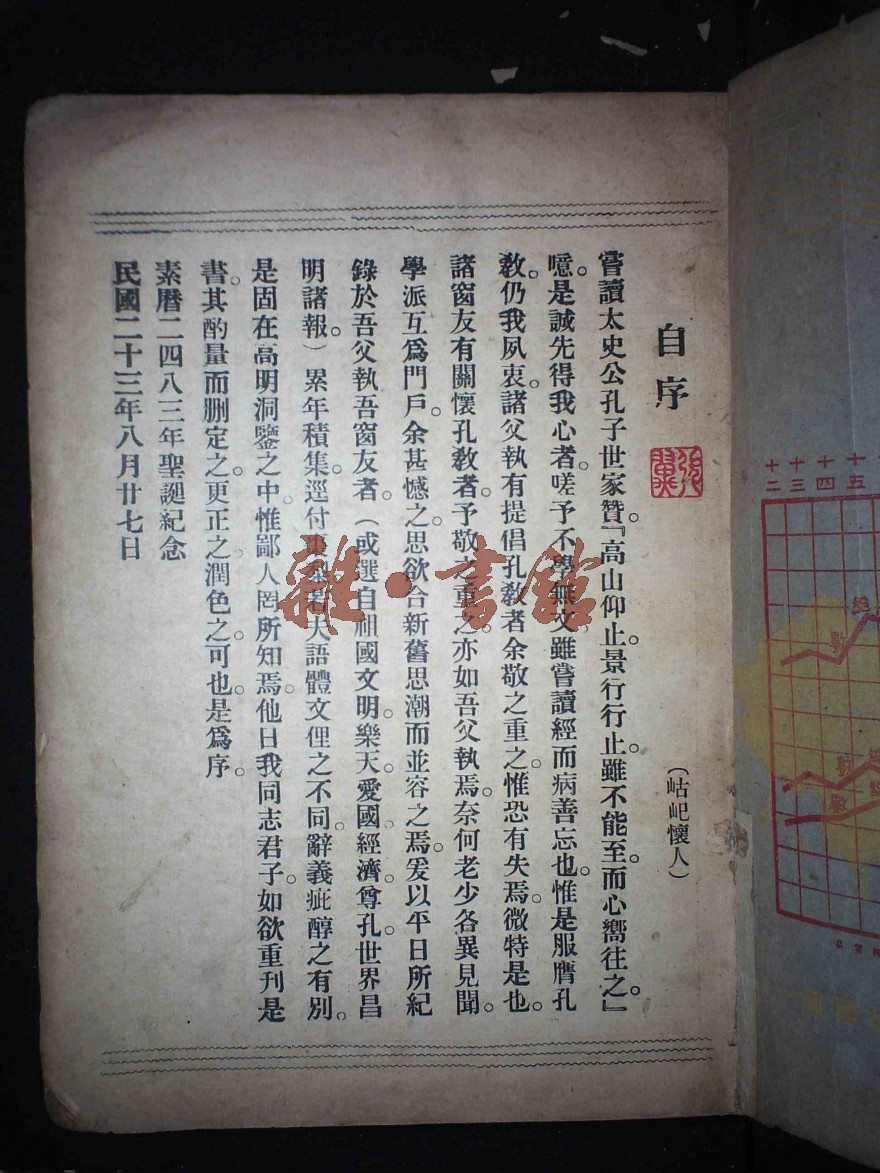 自序
(岵屺懷人)
嘗讀太史公孔子世家贊。『高山仰止。景行行止。雖不能至。而心嚮往之。』
噫。是誠先得我心者。嗟予不學無文。雖嘗讀經而病善忘也。惟是服膺孔
教。仍我夙衷。諸父執有提倡孔教者。余敬之重之。惟恐有失焉。微特是也。
諸窗友有關懷孔教者。予敬之重之。亦如吾父執焉。奈何老少各異見聞。
學派互爲門戶。余甚憾之。思欲合新舊思潮而並容之焉。爰以平日所紀
錄於吾父執吾窗友者。(或選自祖國文明。樂天。愛國。經濟。尊孔。世界昌
明諸報。)累年積集。逕付棗梨。若夫語體文俚之不同。辭義疵醇之有別。
是固在高明洞鑒之中。惟鄙人罔所知焉。他日我同志君子。如欲重刊是
書。其酌量而刪定之。更正之。潤色之。可也。是爲序。
素曆二四八三年聖誕紀念
民國二十三年八月廿七日
雜·書館
十二
十三
十四
十五
數
數
數